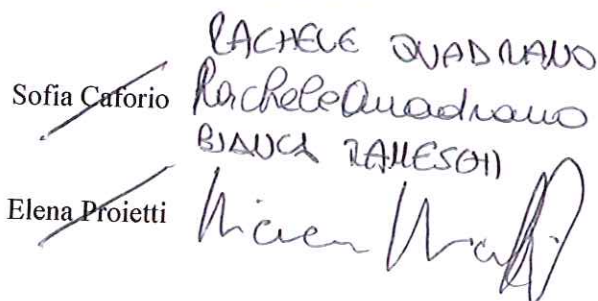 RACHELE QUADRANO
Sofia Caforio Rachele Quadrano
BIANCA
Elena Proietti